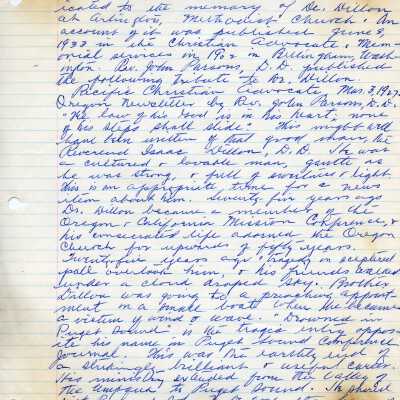 icated to the memory of Dr. Dillon
at Arlington, Methodist Church. An
account of it was published June 8,
1933 in the Christian Advocate. Mem-
orial services in 1902 in Bellingham, Wash-
ington. Rev. John Parsons, D.D. published
the following tribute to Dr. Dillon
Pacific Christian Advocate Mar. 3, 1927.
Oregon Newsletter by Rev. John Parsons, D.D.
"The law of his God is in his heart; none
of his steps shall slide." This might well
have been written of that good man the
Reverend Isaac Dillon, D.D. He was
a cultured & lovable man, gentle as
he was strong, & full of sweetness & light.
This is an appropriate time for a news
item about him. Seventy-five years ago
Dr. Dillon became a member of the
Oregon & California Mission Conference, &
his consecrated life adorned the Oregon
Church for upwards of fifty years.
Twenty-five years ago tragedy in sceptered
pall overtook him, & his friends walked
under a cloud draped sky. Brother
Dillon was going to a preaching appoint-
ment in a small boat when he became
a victim of wind & wave. "Drowned in
Puget Sound" is the tragic entry oppos-
ite his name in Puget Sound Conference
Journal. This was the earthly end of
a strikingly brilliant & useful career.
His ministry extended from the Valley of
the Umpqua to Puget Sound. He